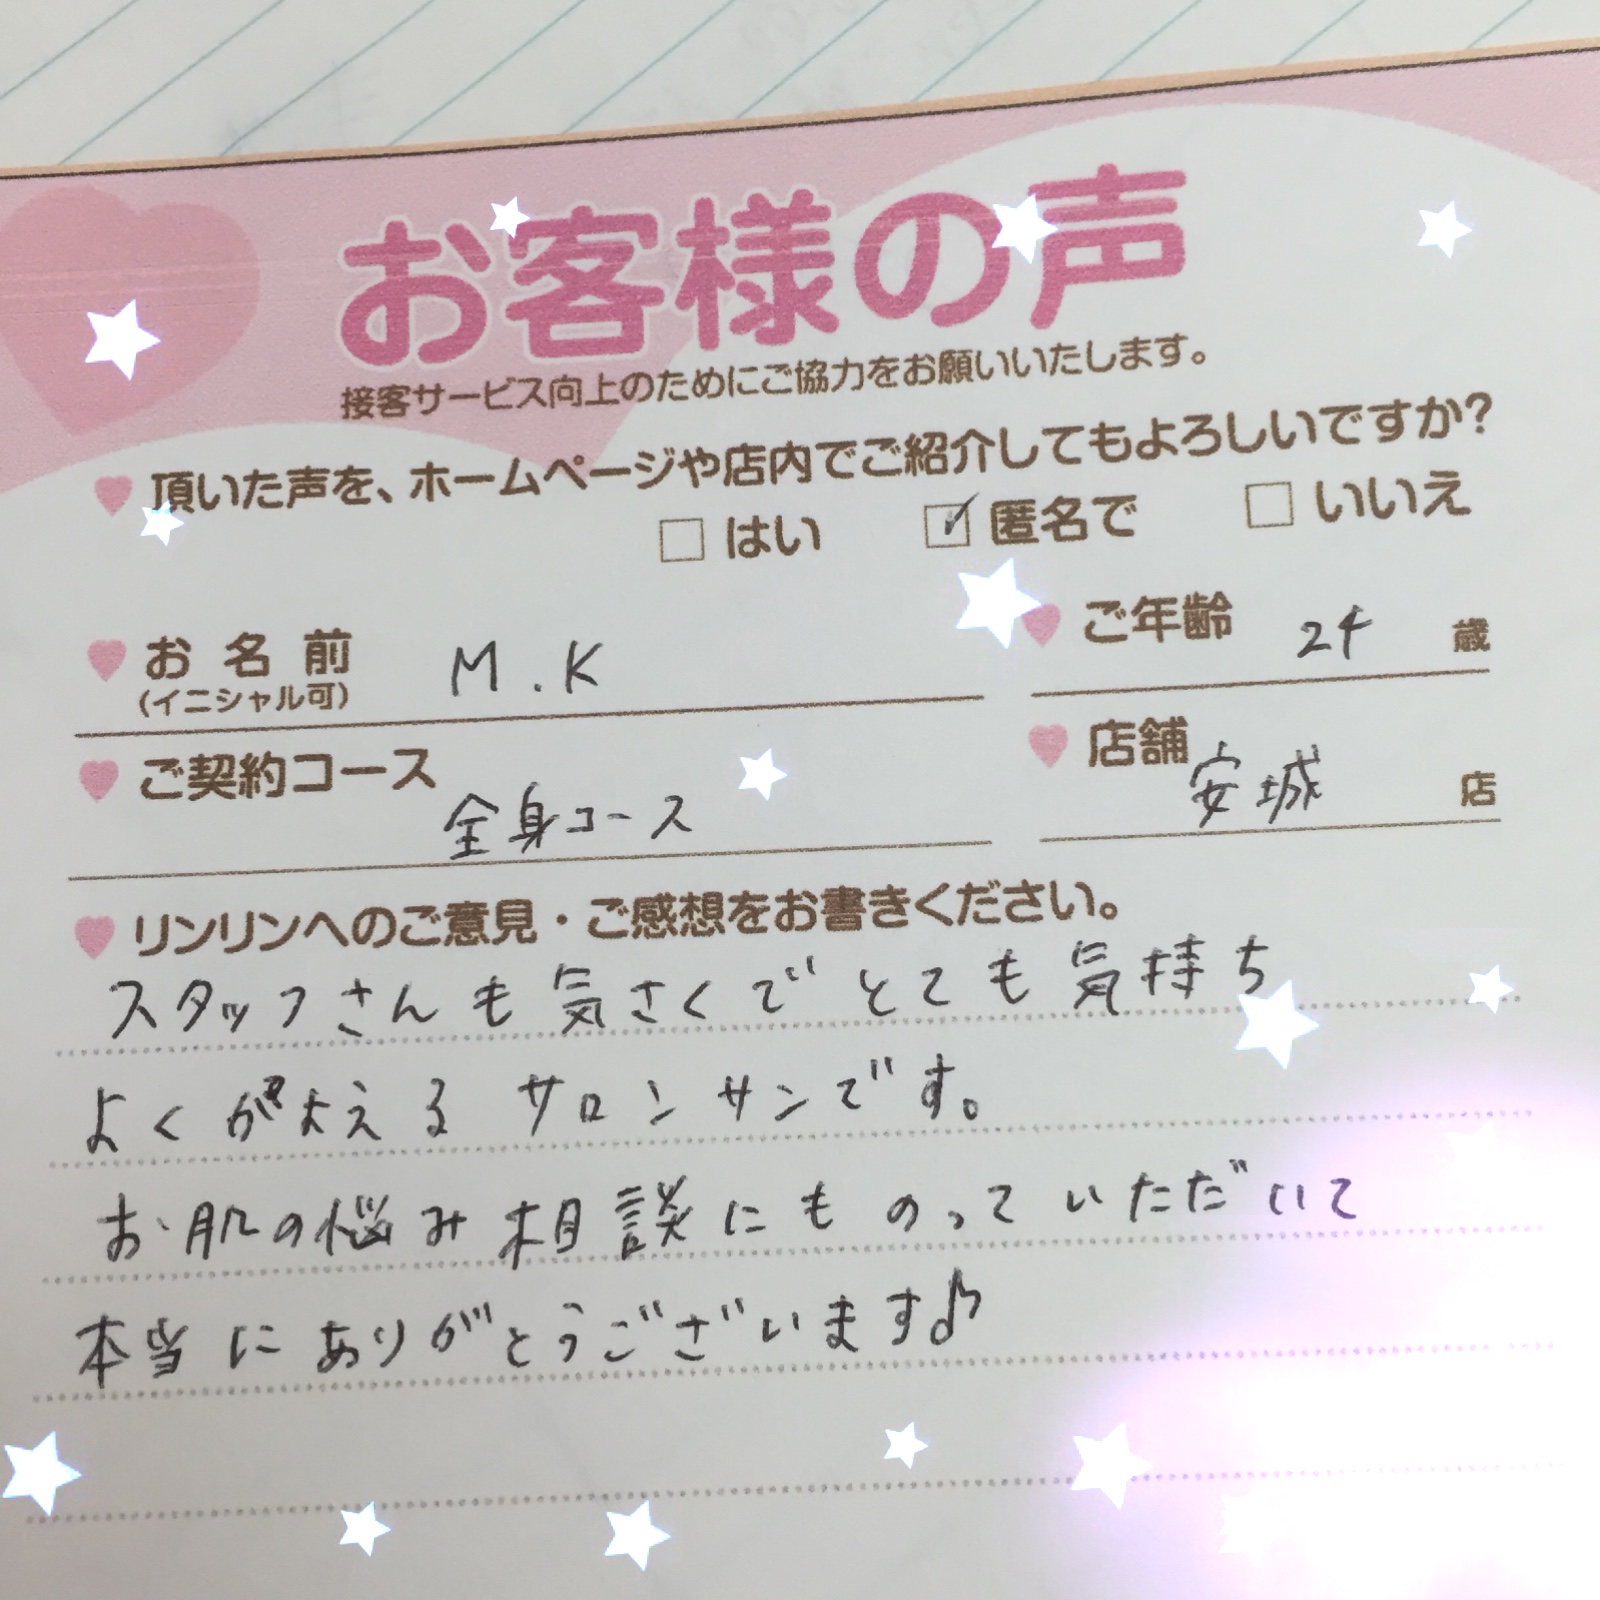 お客様の声
接客サービス向上のためにご協力をお願いいたします。
頂いた声を、ホームページや店内でご紹介してもよろしいですか?
はい 匿名で いいえ
お名前 M.K ご年齢 24 歳
(イニシャル可)
ご契約コース 全身コース 店舗 安城 店
リンリンへのご意見・ご感想をお書きください。
スタッフさんも気さくでとても気持ち
よく 通える サロンサンです。
お肌の悩み相談にものっていただいて
本当にありがとうございます♪